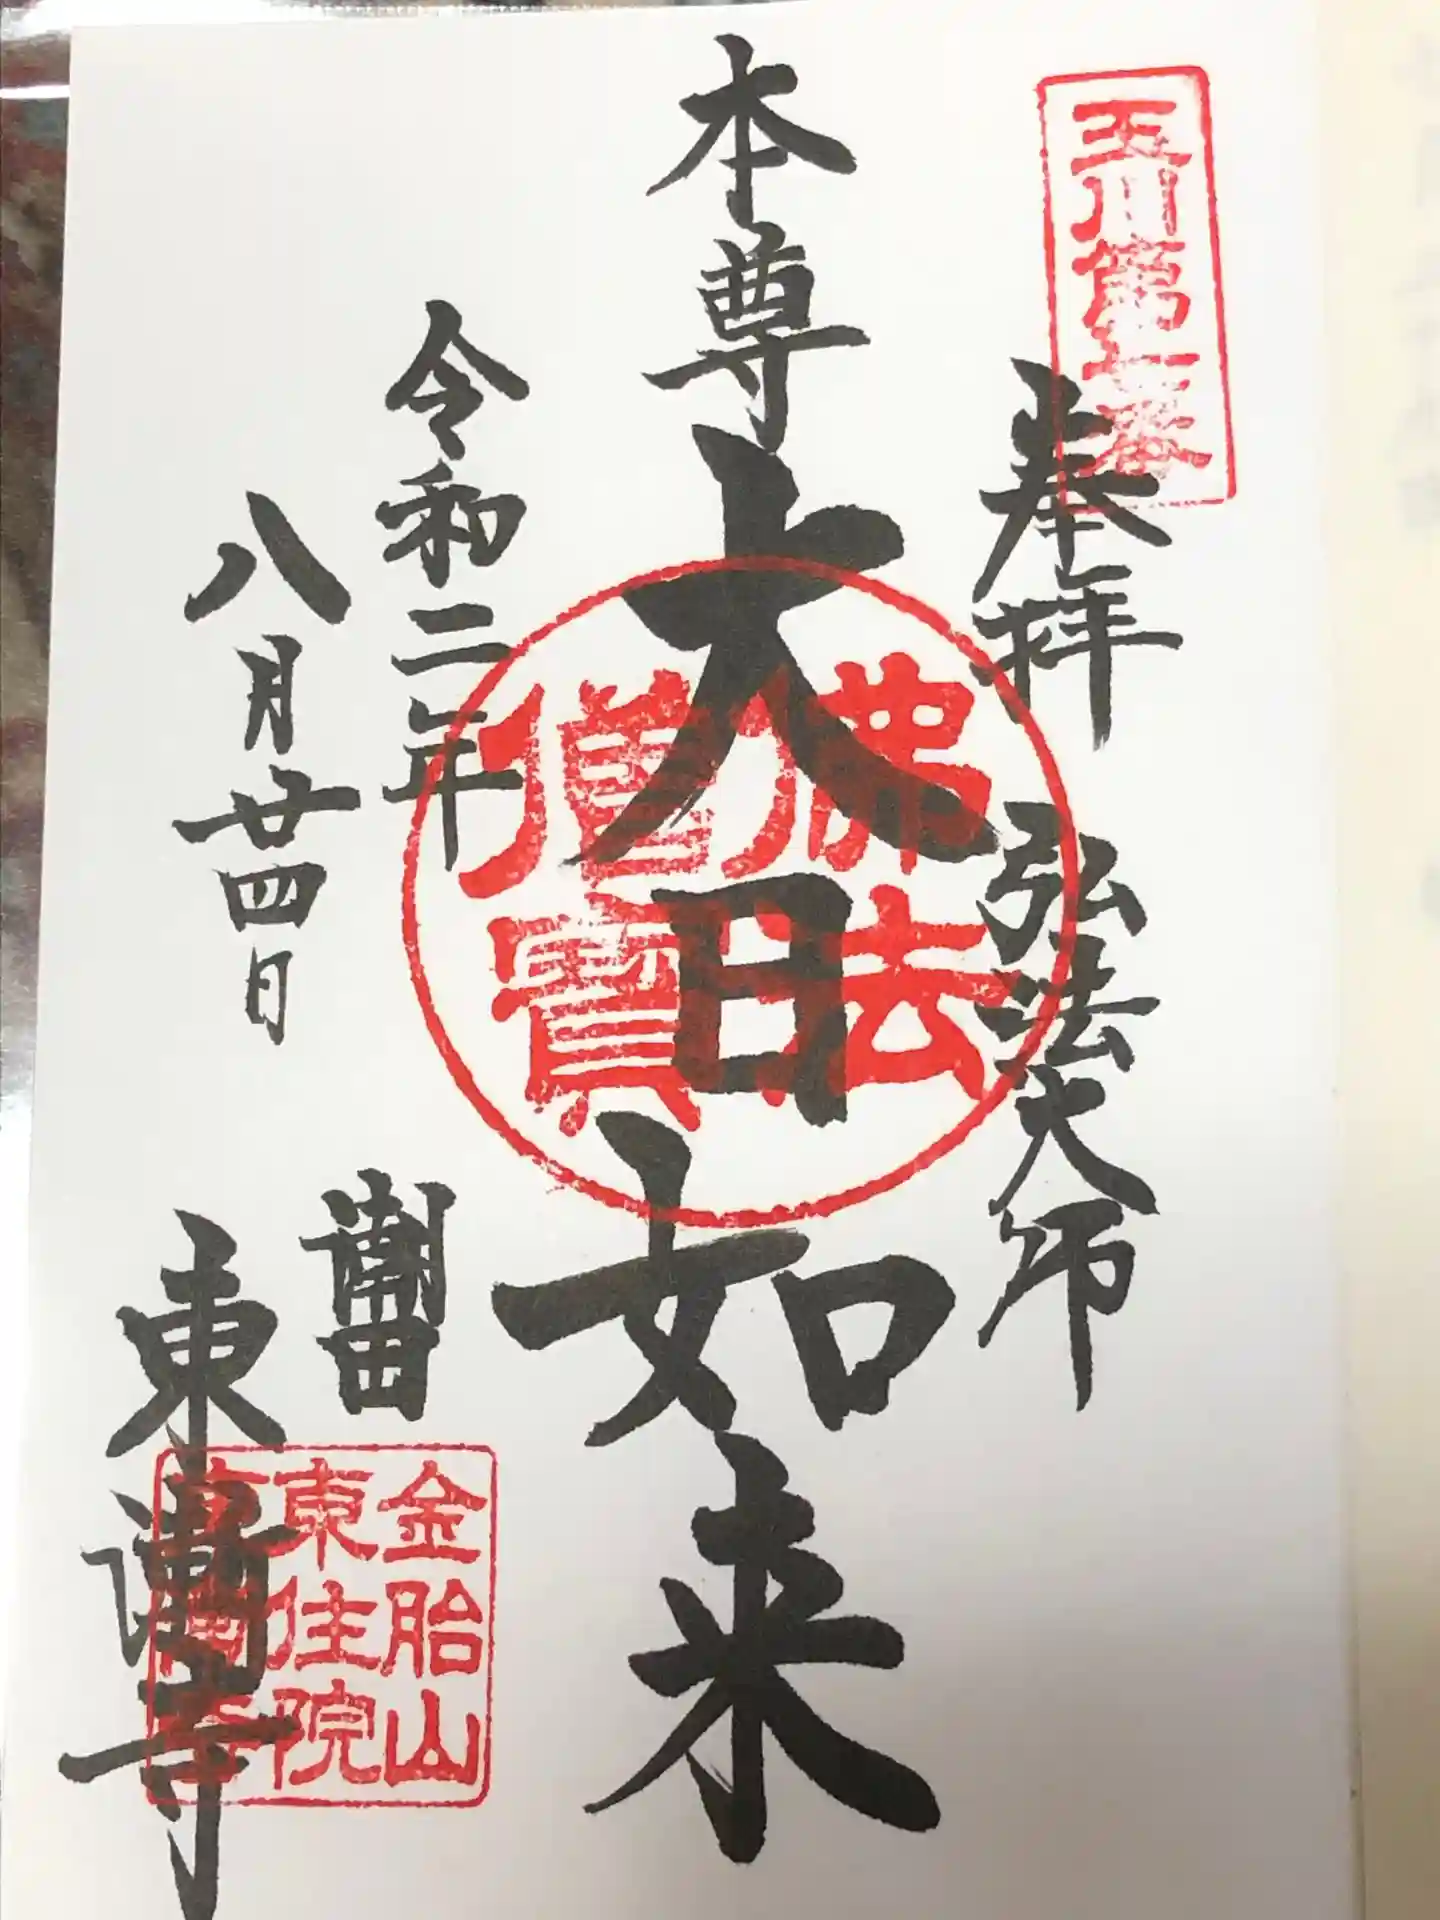 玉川第
奉拝 弘法大師
本尊 大日如来
佛法
僧寶
令和二年
八月廿四日
潮田
東漸寺
金胎山
東住院